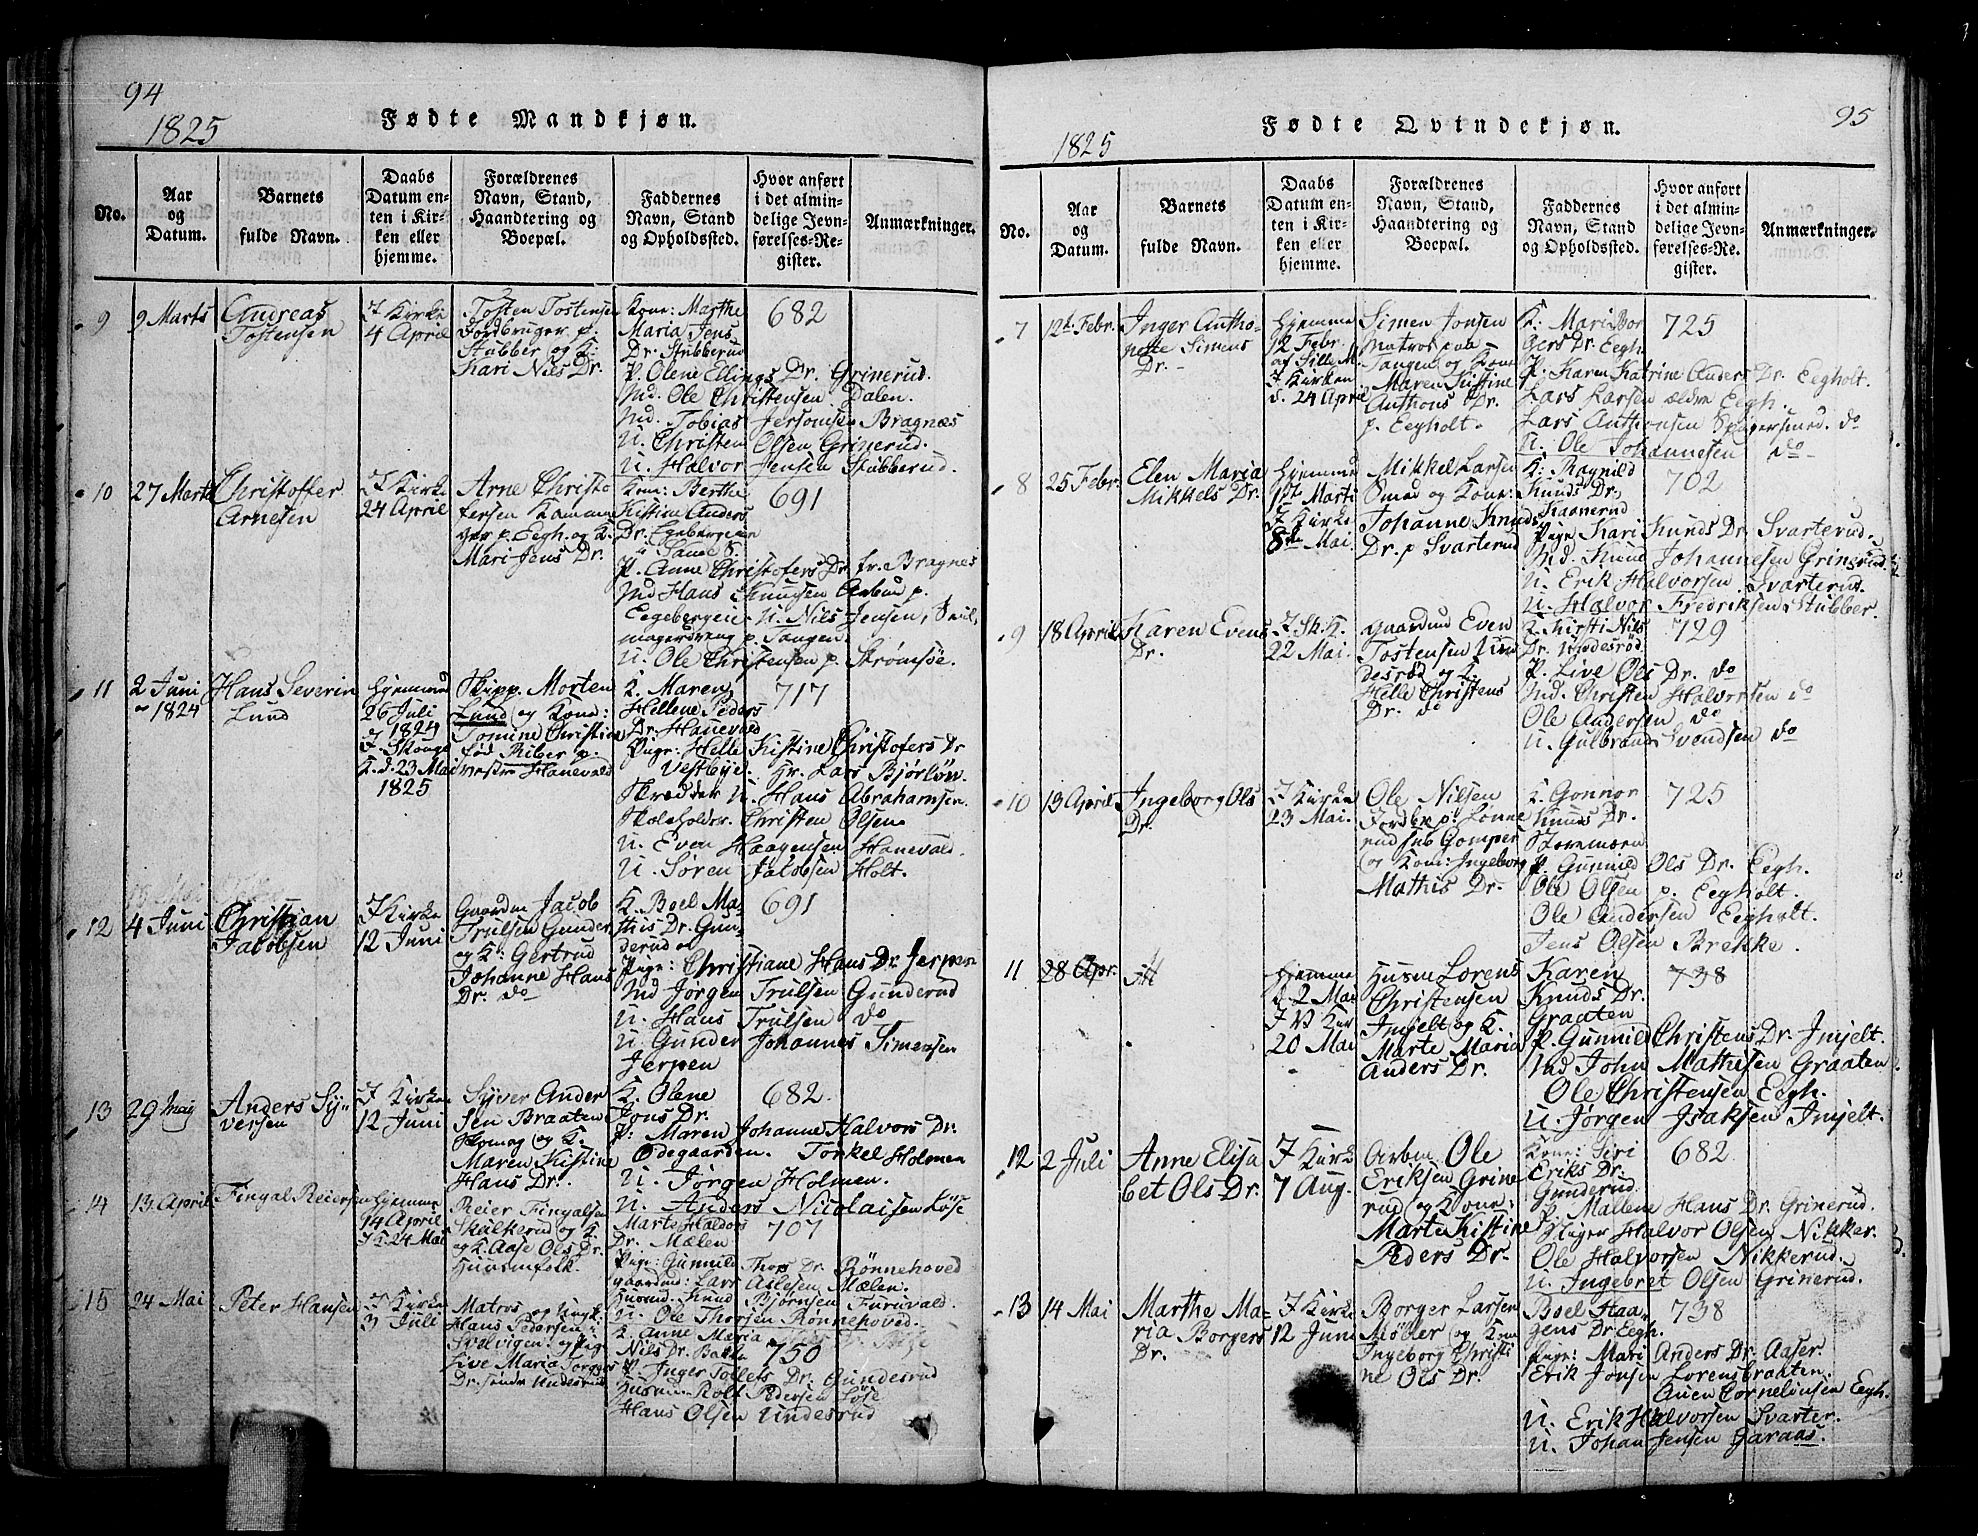 94
1825
Fødte Mandkjøn.
No.
Aar
og
Datum.
Barnets
fulde Navn.
Daabs
Datum en-
ten i Kir-
ken eller
hjemme.
Forældrenes
Navn, Stand,
Haandtering og
Boepæl.
Faddernes
Navn, Stand
og Opholdssted.
Hvor anført
i det almin-
delige Jevn-
førelses-Re-
gister.
Anmærkninger.
9
9 Marts
Andreas
Tostensen
I Kirke
4 April
Tosten Tostensen
Jordbruger p.
Stubber og K:
Kari Nils Dr.
Kone: Marthe
Maria Jens
Dr. Stubberud
P. Olene Ellings Dr. Grinerud.
Md. Ole Christensen Dalen.
Md. Tobias Jersomsen Bragnæs
U. Christen Olsen Grinerud.
U. Halvor Jensen Stubberud.
682
10
27 Marts
Christoffer
Arnesen
I Kirke
24 April
Arne Christo
fersen
p. Eegh. og K.
Mari Jens Dr.
Kone: Berthe
Kistine Anders
Dr. Egebergeien
P. Anne Christofers Dr. fr. Bragnes
Md Hans Knudsen Arbmd p.
Eegebergeie U. Nils Jensen, Seil,
magerdreng p. Tangen.
U. Ole Christensen p. Strømsøe.
691
11
2 Juni
1824
Hans Severin
Lund
Hjemmed
26 Juli
1824
I. Skouge
K. d. 23 Mai
1825
Skipp. Morten
Lund og Kone:
Tomine Christine
fød Riber p.
vestre Hanevald
K. Maren
Hellene Peders
Dr. Hanevald
Pige: Helle Kistine Christofers Dr
Vestbye. Hr. Lars Bjørløw.
Skredder U. Hans Abrahamsen
Skoleholder. Christen Olsen
U. Even Haagensen Hanevald.
U. Søren Jacobsen Holt.
717
12
4 Juni
Christian
Jacobsen
I Kirke
12 Juni
Gaardm Jacob
Trulsen Gunder
og K: Gertrud
Johanne Hans
Dr. do
K. Boel Ma-
this Dr. Gun-
derud
Pige: Christiane Hans Dr. Jerpen
Md Jørgen Trulsen Gunderud
U. Hans Trulsen do
U. Gunder Johannes Simensen
Jerpen
691
13
29 May
Anders Sy-
versen
I Kirke
12 Juni
Syver Ander
sen Braaten
Skomag og K.
Maren Kistine
Hans Dr.
K. Olene
Jons Dr.
P: Maren Johanne Halvors Dr.
Ødegaarden. Torkel Holmen
U. Jørgen Holmen.
U. Anders Nicolaisen Løse
682
14
13 April
Fingal Reiersen
Hjemme
14 April
I K. 24 Mai
Reier Fingalsen
Skalkerud og K.
og K. Aase Ols Dr.
Huusmfolk.
Marte Haldors
Dr. Mælen
Pige: Gunnild Thors Dr. Rønnehoved
gaardmd: Lars Aslesen Mælen.
Huusmd: Knud Bjørnsen Furuvald.
U. Ole Thorsen Rønnehoved.
707
15
24 Mai
Peter Hansen
I Kirke
3 Juli
Matros og Ungk:
Hans Pedersen
Svelvigen og Pige
Live Maria Torgers
Dr. søndr Undesrud
K. Anne Maria
Nils Dr. Bakke
P. Inger Tollefs Dr. Gundesrud
Huusm Rolf Pedersen Løse
Hans Olsen Undesrud
750
95
1825
Fødte Qvindekjøn.
No.
Aar
og
Datum.
Barnets
fulde Navn.
Daabs
Datum en-
ten i Kir-
ken eller
hjemme.
Forældrenes
Navn, Stand,
Haandtering og
Boepæl.
Faddernes
Navn, Stand
og Opholdssted.
Hvor anført
i det almin-
delige Jevn-
førelses-Re-
gister.
Anmærkninger.
7
12te Febr.
Inger Antho-
nette Simens
Dr.
Hjemme
12 Febr.
af Sille M.
I Kirken
d. 24 April
Simen Jonsen
Matros paa
Tangen og Kone
Maren Kistine
Anthons Dr.
p. Eegholt.
K: Mari Bor
gers Dr. Eegh.
P. Karen Katrine Anders Dr. Eegholt.
Lars Larsen ældre Eegh.
Lars Anthonsen do
U. Ole Johannesen do
725
8
25 Febr.
Elen Maria
Mikkels Dr.
Hjemme
1ste Marts
I Kirke
8de Mai.
Mikkel Larsen
Smed og Kone:
Johanne Knuds
Dr. p Svarterud
K: Ragnild
Knuds Dr.
Haanerud
Pige Kari Knuds Dr. Svarterud.
Md. Knud Johannesen Grinerud.
U. Erik Halvorsen Svarterud.
U. Halvor Fredriksen Stubber
702
9
18 April
Karen Evens
Dr.
I Sk. K.
22 Mai.
Gaardmd Even
Tostensen Und
desrød og K.
Helle Christens
Dr. do
K. Kirsti Nils
Dr. Undesrød
P. Live Ols Dr. do
Md. Christen Halvorsen do
Ole Andersen do
U. Gulbrand Svendsen do
729
10
13 April
Ingeborg Ols
Dr.
I Kirke
23 Mai.
Ole Nilsen
Jordbr p. Lønne
rud sub Gomper
og Kone: Ingeborg
Mathis Dr.
K. Gonnor
Knuds Dr.
P. Gunnild Ols Dr. Eegh.
Ole Olsen p. Eegholt.
Ole Andersen Eegholt.
Jens Olsen Brekke.
725
11
28 Apr.
M
Hjemme
d. 2 Mai
I V Kir
20 Mai
Husm Lorens
Christensen
Injelt og K.
Marte Maria
Anders Dr.
Karen
Knuds Dr.
Graaten
P. Gunnild Christens Dr. Injelt.
Md John Mathisen Graaten
Ole Christensen Eegh.
U. Jørgen Isaksen Injelt.
738
12
2 Juli
Anne Elisa
bet Ols Dr.
I Kirk
7 Aug.
Arbm Ole
Eriksen Grine
rud og Kone:
Marte Kistine
Peders Dr.
Kone: Siri
Eriks Dr.
Gunderud.
P. Mallene Hans Dr. Grinerud.
Halvor Olsen Nikker.
Ole Halvorsen Nikkerud.
U. Ingebret Olsen Grinerud.
682
13
14 Mai
Marthe Ma-
ria Borgers
Dr.
I Kirke
12 Juni
Borger Larsen
Møller og Kone
Ingeborg Christi
ne Ols Dr.
Boel Haa-
gens Dr Eegh.
Pige: Mari Anders Dr. Aaser.
Erik Jonsen Lorensbraaten.
Auen Cornelinsen Eegh.
U. Erik Halvorsen Svarter.
U. Johan Jensen Garaas.
738